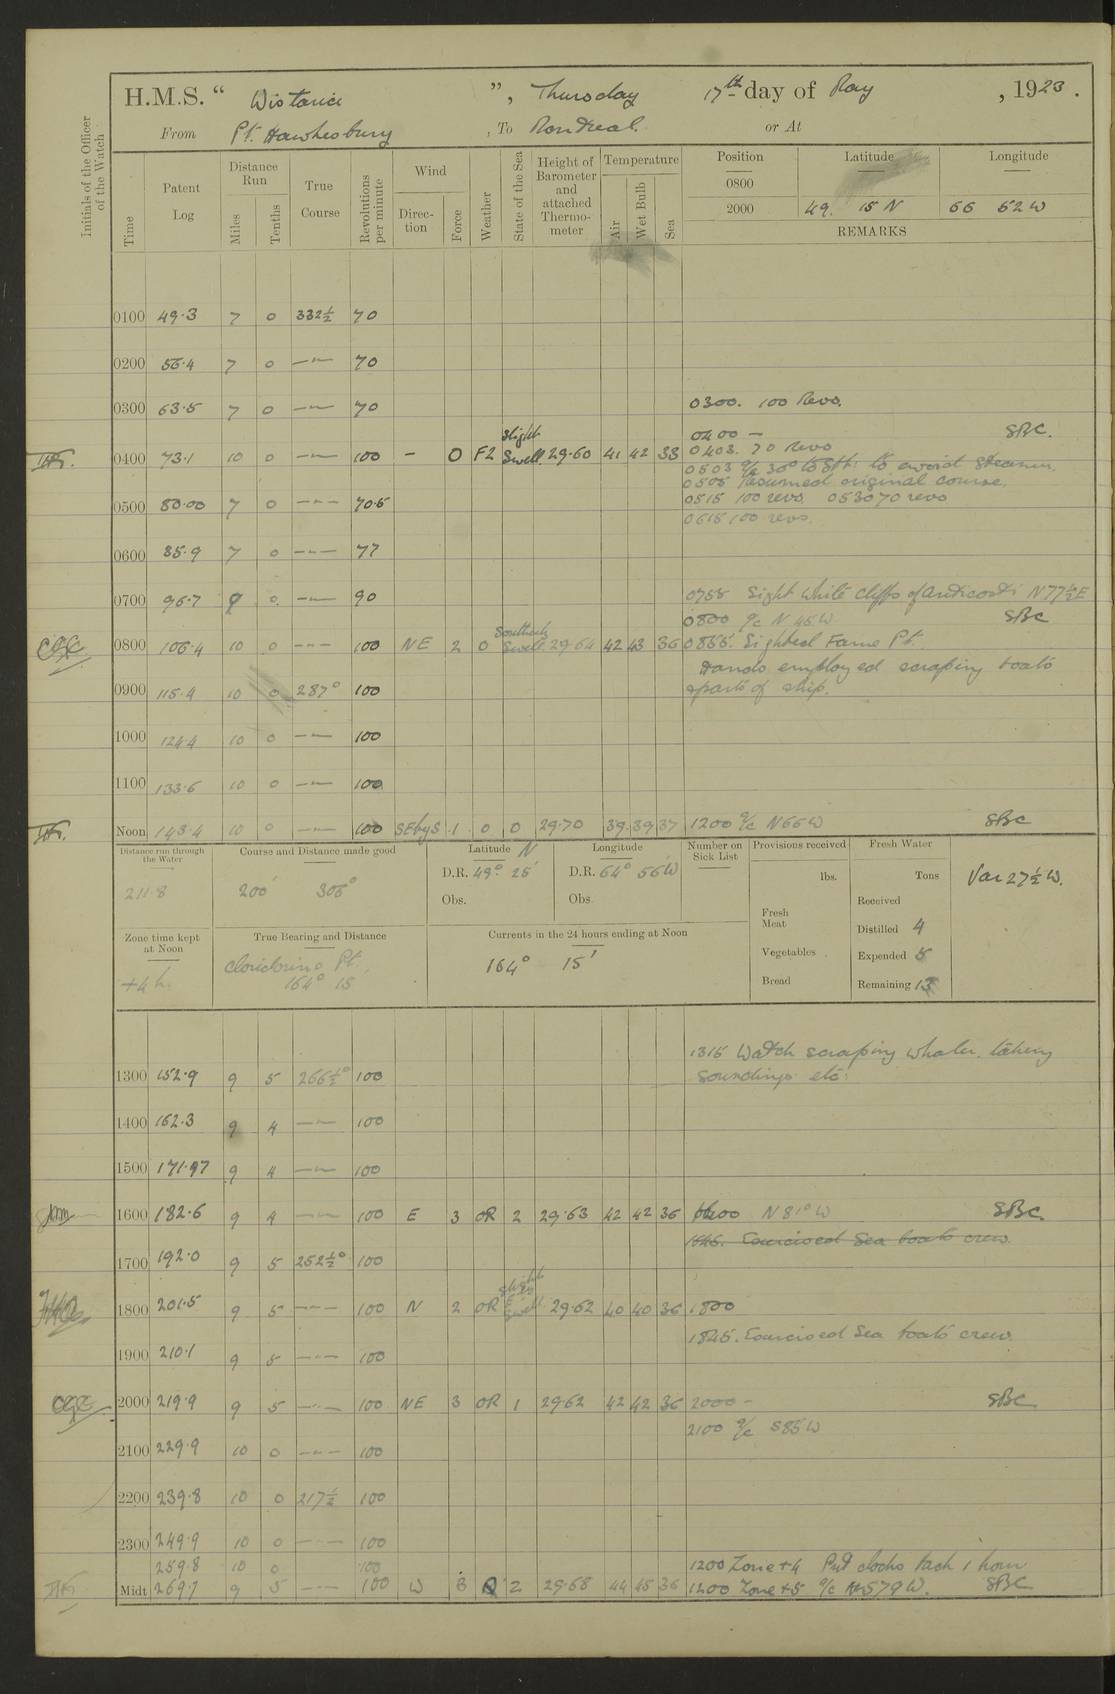 H.M.S. “ Wistaria ”, Thursday 17th day of May, 1923.
From Pt. Hawkesbury, To Montreal. or At
Initials of the Officer of the Watch
Time
Patent Log
Distance Run
Miles
Tenths
True Course
Revolutions per minute
Wind
Direction
Force
Weather
State of the Sea
Height of Barometer and attached Thermometer
Temperature
Air
Wet Bulb
Sea
Position Latitude Longitude
0800
2000 49. 15 N 66 52 W
REMARKS
0100 49.3 7 0 332½ 70
0200 56.4 7 0 —"— 70
0300 63.5 7 0 —"— 70
0300. 100 Revs.
0400 — SBC.
0400 73.1 10 0 —"— 100 - 0 F2 Slight Swell. 29.60 41 42 33
0403. 70 Revs
0503 a/c 30° to Sth: to avoid steamer.
0505 Resumed original course.
0500 80.00 7 0 —"— 70.5
0515 100 revs 0530 70 revs
0615 100 revs.
0600 85.9 7 0 —"— 77
0700 96.7 9 0. —"— 90
0758 Sight white cliffs of Anticosti N77½E
0800 a/c N 45W SBC
0800 106.4 10 0 —"— 100 NE 2 0 Southerly Swell 29.64 42 43 36
0855. Sighted Fame Pt.
Hands employed scraping boats
& parts of ship.
0900 115.4 10 0 287° 100
1000 124.4 10 0 —"— 100
1100 133.6 10 0 —"— 100
Noon 143.4 10 0 —"— 100 SEbyS 1 0 0 29.70 39. 39 37 1200 a/c N66W SBC
Distance run through the Water
211.8
Course and Distance made good
200' 306°
Latitude N
D.R. 49° 25'
Obs.
Longitude
D.R. 64° 56'W
Obs.
Number on Sick List
Provisions received
lbs.
Fresh Meat
Vegetables
Bread
Fresh Water
Tons
Received
Distilled 4
Expended 5
Remaining 13
Var 27½ W.
Zone time kept at Noon
+4 h.
True Bearing and Distance
Pt.
164° 15
Currents in the 24 hours ending at Noon
164° 15'
1315 Watch scraping whaler. taking
soundings etc:
1300 152.9 9 5 266½° 100
1400 162.3 9 4 —"— 100
1500 171.97 9 4 —"— 100
1600 182.6 9 4 —"— 100 E 3 OR 2 29.63 42 42 36 1600 N 81° W SBC
1645. Exercised Sea boats crew
1700 192.0 9 5 252½° 100
1800 201.5 9 5 —"— 100 N 2 OR Slight Swell 29.62 40 40 36 1800
1845. Exercised Sea boats crew
1900 210.1 9 5 —"— 100
2000 219.9 9 5 —"— 100 NE 3 OR 1 29.62 42 42 36 2000 - SBC
2100 a/c S85W
2100 229.9 10 0 —"— 100
2200 239.8 10 0 217½ 100
2300 249.9 10 0 —"— 100
259.8 10 0 100 1200 Zone +4 Put clocks back 1 hour
Midt 269.7 9 5 —"— 100 W 3 2 29.68 44 45 36 1200 Zone +5 a/c S79W. SBC